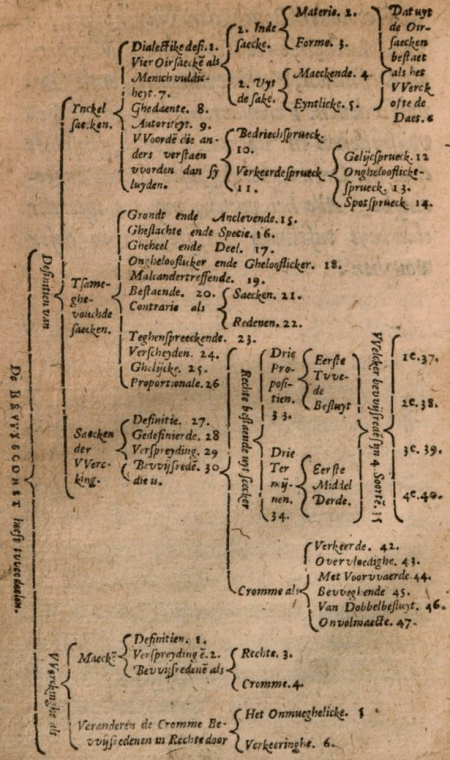 De BEVVYSCONST heeft tvvee deelen.
Definitien van
Ynckel
saecken.
Dialectike defi. 1.
Vier Oirsaeckē als
Mensch vuldic-
heyt. 7.
Ghedaente. 8.
Autoriteyt. 9.
VVoordē die an-
ders verstaen
vvorden dan sy
luyden.
1. Inde
saecke.
Materie. 2.
Forme. 3.
2. Uyt
de sake.
Maeckende. 4
Eyntlicke. 5.
Dat uyt
de Oir-
saecken
bestaet
als het
VVerck
ofte de
Daet. 6
Bedriechsprueck.
10.
Verkeerdesprueck
11.
Gelijcsprueck. 12
Onghelooflicke-
sprueck. 13.
Spotsprueck 14.
Tsame-
ghe-
vouchde
saecken.
Grondt ende Anclevende. 15.
Gheslachte ende Specie. 16.
Gheheel ende Deel. 17.
Onghelooflicker ende Ghelooflicker. 18.
Malcandertreffende. 19.
Bestaende. 20.
Contrarie als
Saecken. 21.
Redenen. 22.
Teghenspreeckende. 23.
Verscheyden. 24.
Ghelijcke. 25.
Proportionale. 26
Saecken
der
VVerc-
king.
Definitie. 27.
Gedefinierde. 28
Verspreyding. 29
Bevvijsredē. 30
die is.
Rechte bestaende uyt seecker
Drie
Pro-
posi-
tien.
33.
Eerste
Tvve-
de
Besluyt
Drie
Ter
mij-
nen.
34.
Eerste
Middel
Derde.
Welcker bevvijsredē sijn 4. Soortē. 35
1e. 37.
2e. 38.
3e. 39.
4e. 40.
Cromme als
Verkeerde. 42.
Overvloedighe. 43.
Met Voorvvaerde. 44.
Bevveghende 45.
Van Dobbelbesluyt. 46.
Onvolmaecte. 47.
VVerckinghe als
Maeckē
Definitien. 1.
Verspreydingē. 2.
Bevvijsredenē als
Rechte. 3.
Cromme. 4.
Veranderen de Cromme Be-
vvijsredenen in Rechte door
Het Onmueghelicke. 5
Verkeeringhe. 6.